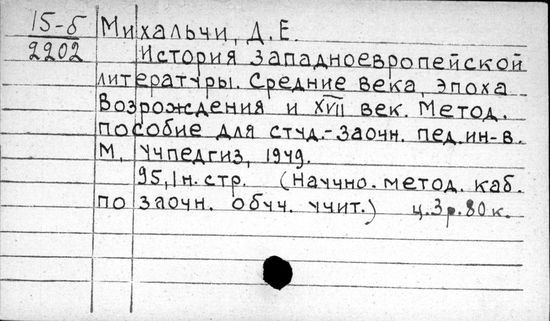 15-5 Михальчи, Д.Е.
2202 История западноевропейской
литературы. Средние века, эпоха
Возрождения и XVII век. Метод.
пособие для студ.-заочн. пед.ин-в.
М., Учпедгиз, 1949.
95,1н.стр. (Научно.метод. каб.
по заочн. обуч. учит.) ц.3р.80к.